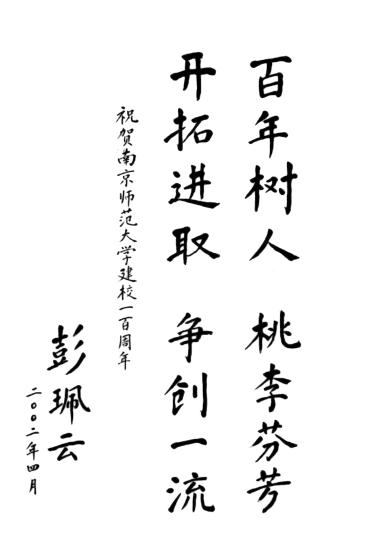 百年树人 桃李芬芳
开拓进取 争创一流
祝贺南京师范大学建校一百周年
彭珮云
二〇〇二年四月